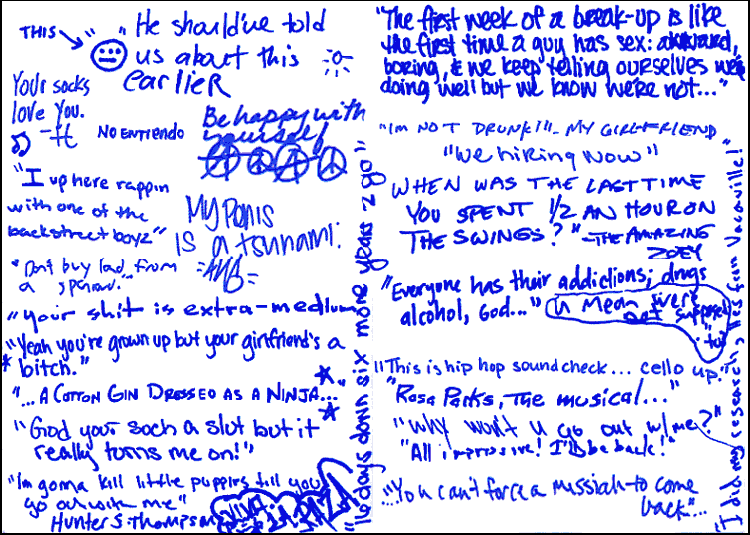 THIS
"He should've told
us about this
earlier
Your socks
love you.
NO ENTIENDO
Be happy with
yourself
"I up here rappin
with one of the
backstreet boyz"
My Penis
is a tsunami.
"Don't buy land from
a
"your shit is extra-medium"
"Yeah you're grown up but your girlfriend's a
bitch."
"...A COTTON GIN DRESSED AS A NINJA..."
"God your such a slut but it
really turns me on!"
"I'm gonna kill little puppies till you
go out with me"
Hunter S. Thompson
"16 days down six more years 2 go"
"The first week of a break-up is like
the first time a guy has sex: awkward,
boring, & we keep telling ourselves we're
doing well but we know we're not..."
"I'm NOT DRUNK!!!- MY GIRLFRIEND"
"We hiring Now"
WHEN WAS THE LAST TIME
YOU SPENT 1/2 AN HOUR ON
THE SWINGS?" -THE AMAZING
ZOEY
"Everyone has their addictions; drugs
alcohol, God..."
u mean we're
not supposed
to?
"This is hip hop soundcheck... cello up."
"Rosa Parks, The musical..."
"why won't u go out w/me?"
"All improvise! I'll be back!"
...You can't force a messiah to come
back"...
"I did my research, lies from Vacaville!"